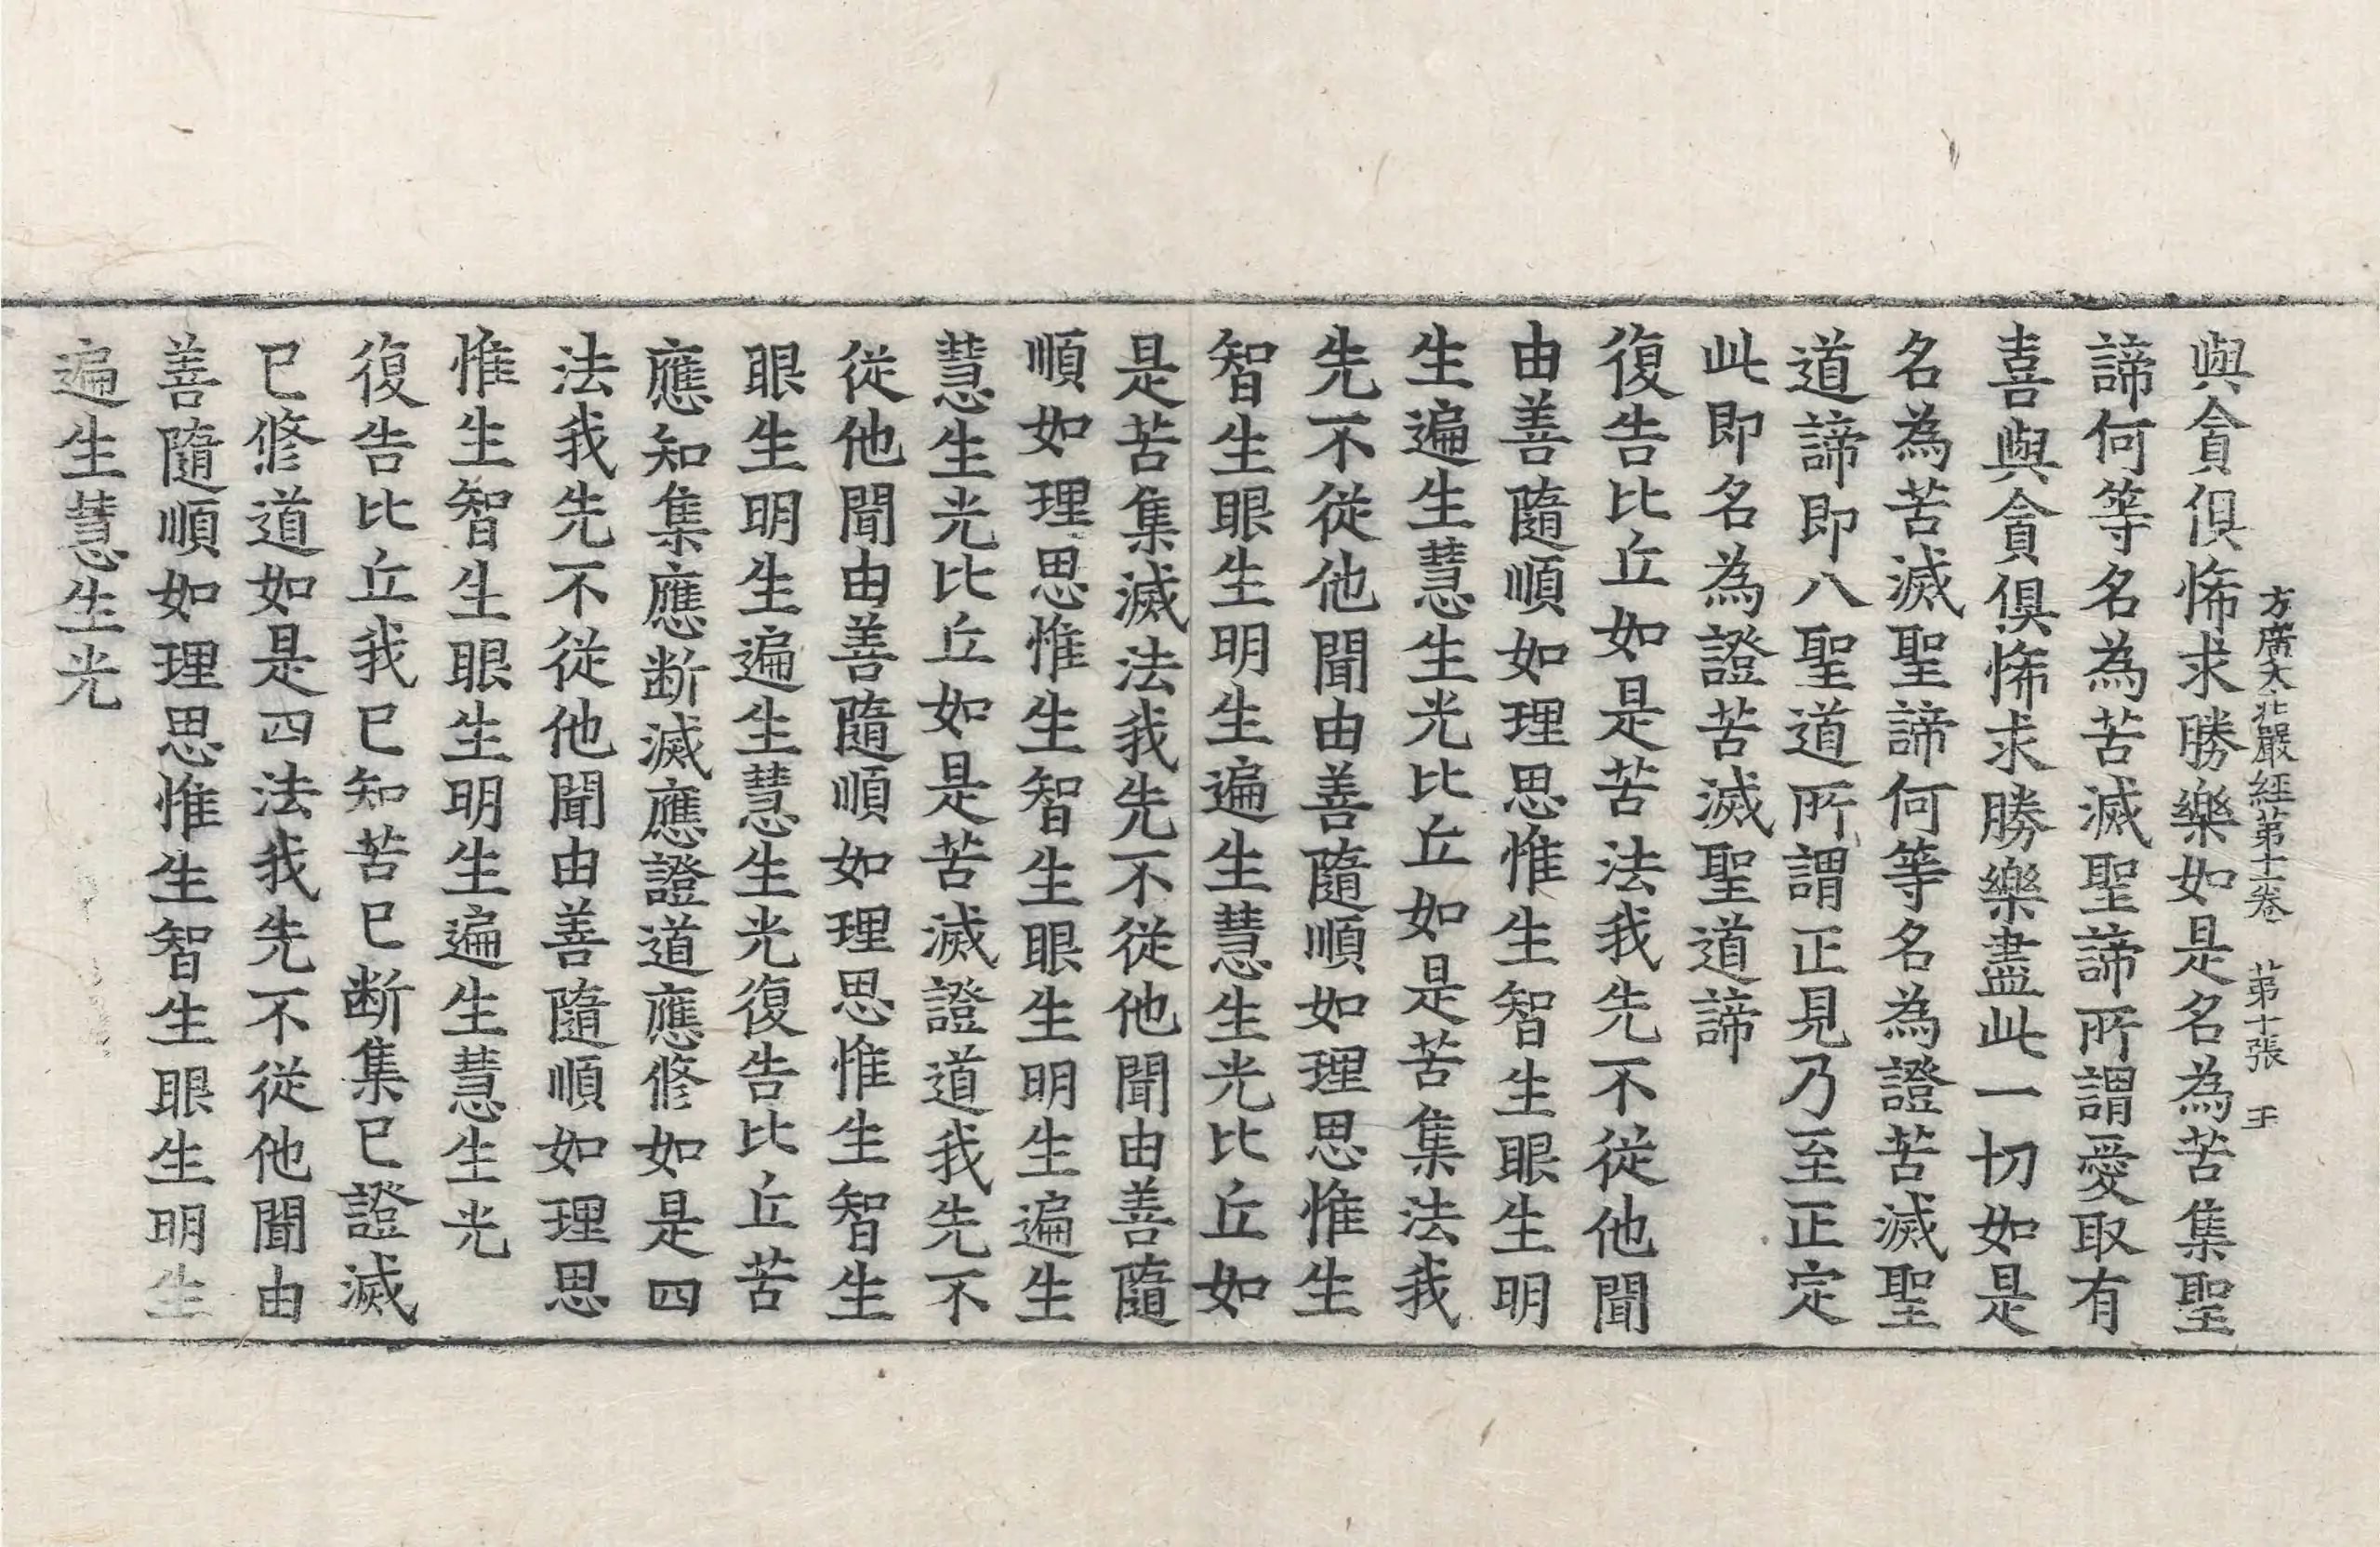 方廣大庄嚴經第十一卷 第十張 王
與貪俱悕求勝樂如是名為苦集聖
諦何等名為苦滅聖諦所謂愛取有
喜與貪俱悕求勝樂盡此一切如是
名為苦滅聖諦何等名為證苦滅聖
道諦即八聖道所謂正見乃至正定
此即名為證苦滅聖道諦
復告比丘如是苦法我先不從他聞
由善隨順如理思惟生智生眼生明
生遍生慧生光比丘如是苦集法我
先不從他聞由善隨順如理思惟生
智生眼生明生遍生慧生光比丘如
是苦集滅法我先不從他聞由善隨
順如理思惟生智生眼生明生遍生
慧生光比丘如是苦滅證道我先不
從他聞由善隨順如理思惟生智生
眼生明生遍生慧生光復告比丘苦
應知集應断滅應證道應修如是四
法我先不從他聞由善隨順如理思
惟生智生眼生明生遍生慧生光
復告比丘我已知苦已断集已證滅
已修道如是四法我先不從他聞由
善隨順如理思惟生智生眼生明生
遍生慧生光